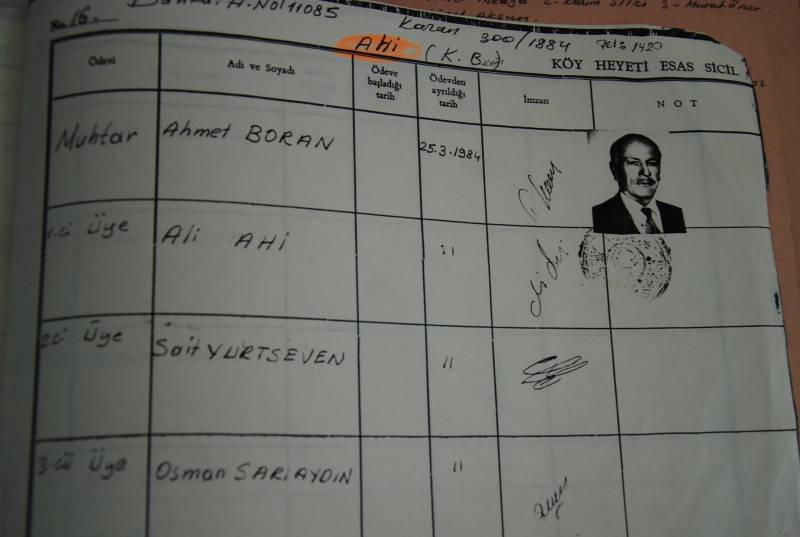 No 16. Banka. A.No 11085
Karan 300/1884
AHi
KÖY HEYETİ ESAS SİCİL
Ödevi
Adı ve Soyadı
Ödeve başladığı tarih
Ödevden ayrıldığı tarih
İmzası
NOT
Muhtar Ahmet BORAN 25.3.1984
1.ci Üye Ali AHİ "
2ci Üye Sait YURTSEVEN "
3-cü Üye Osman SARIAYDIN "